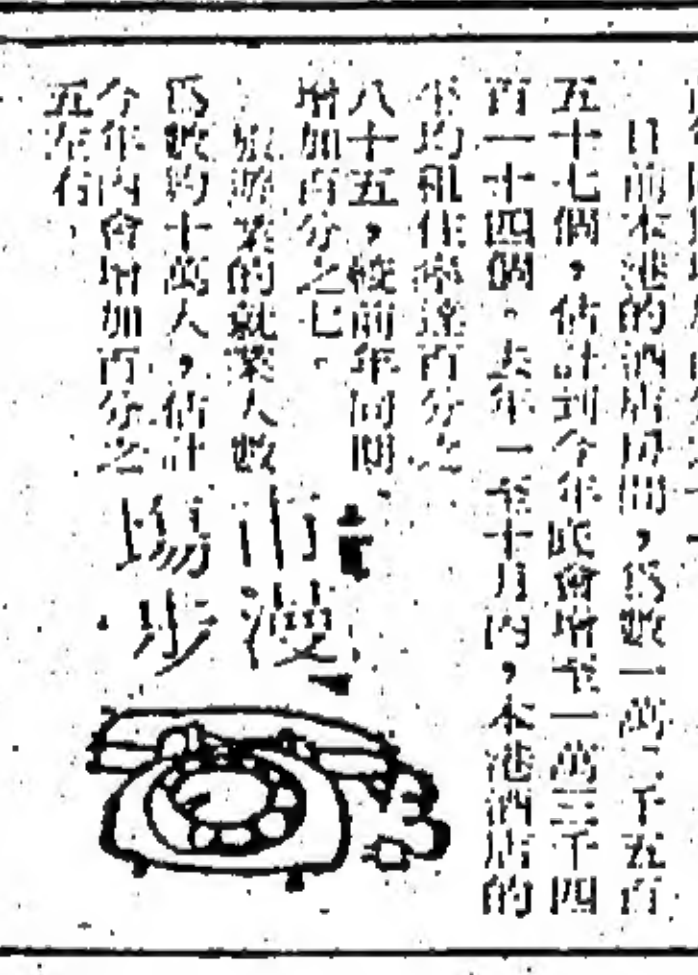 目前本港的酒店房間，為數一萬二千五百
五十七個，估計到今年底會增至一萬三千四
百一十四個。去年一至十月內，本港酒店的
平均租住率達百分之
八十五，較前年同期
增加百分之七。
旅遊業的就業人數
為數約十萬人，估計
今年內會增加百分之
五左右。
市場
漫步